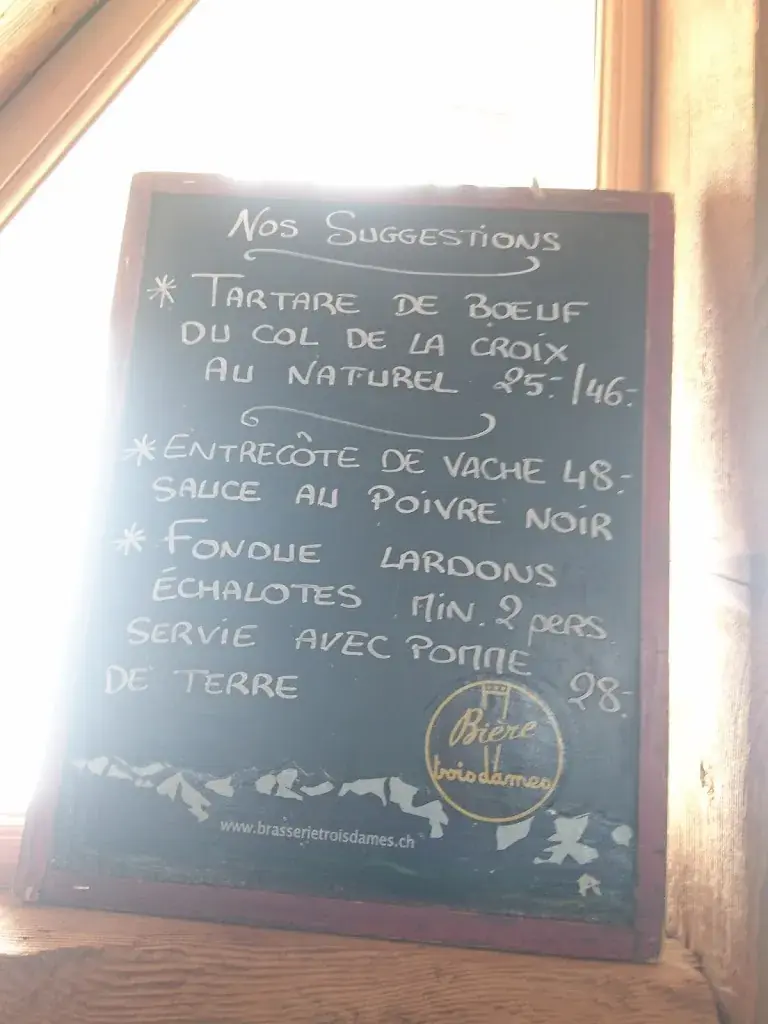 Nos Suggestions
* TARTARE DE BOEUF
DU COL DE LA CROIX
AU NATUREL 25.-/46.-
* ENTRECÔTE DE VACHE 48.-
SAUCE AU POIVRE NOIR
* FONDUE LARDONS
ÉCHALOTES MIN. 2 pers
SERVIE AVEC POMME
DE TERRE 28.-
Bière
trois dames
www.brasserietroisdames.ch